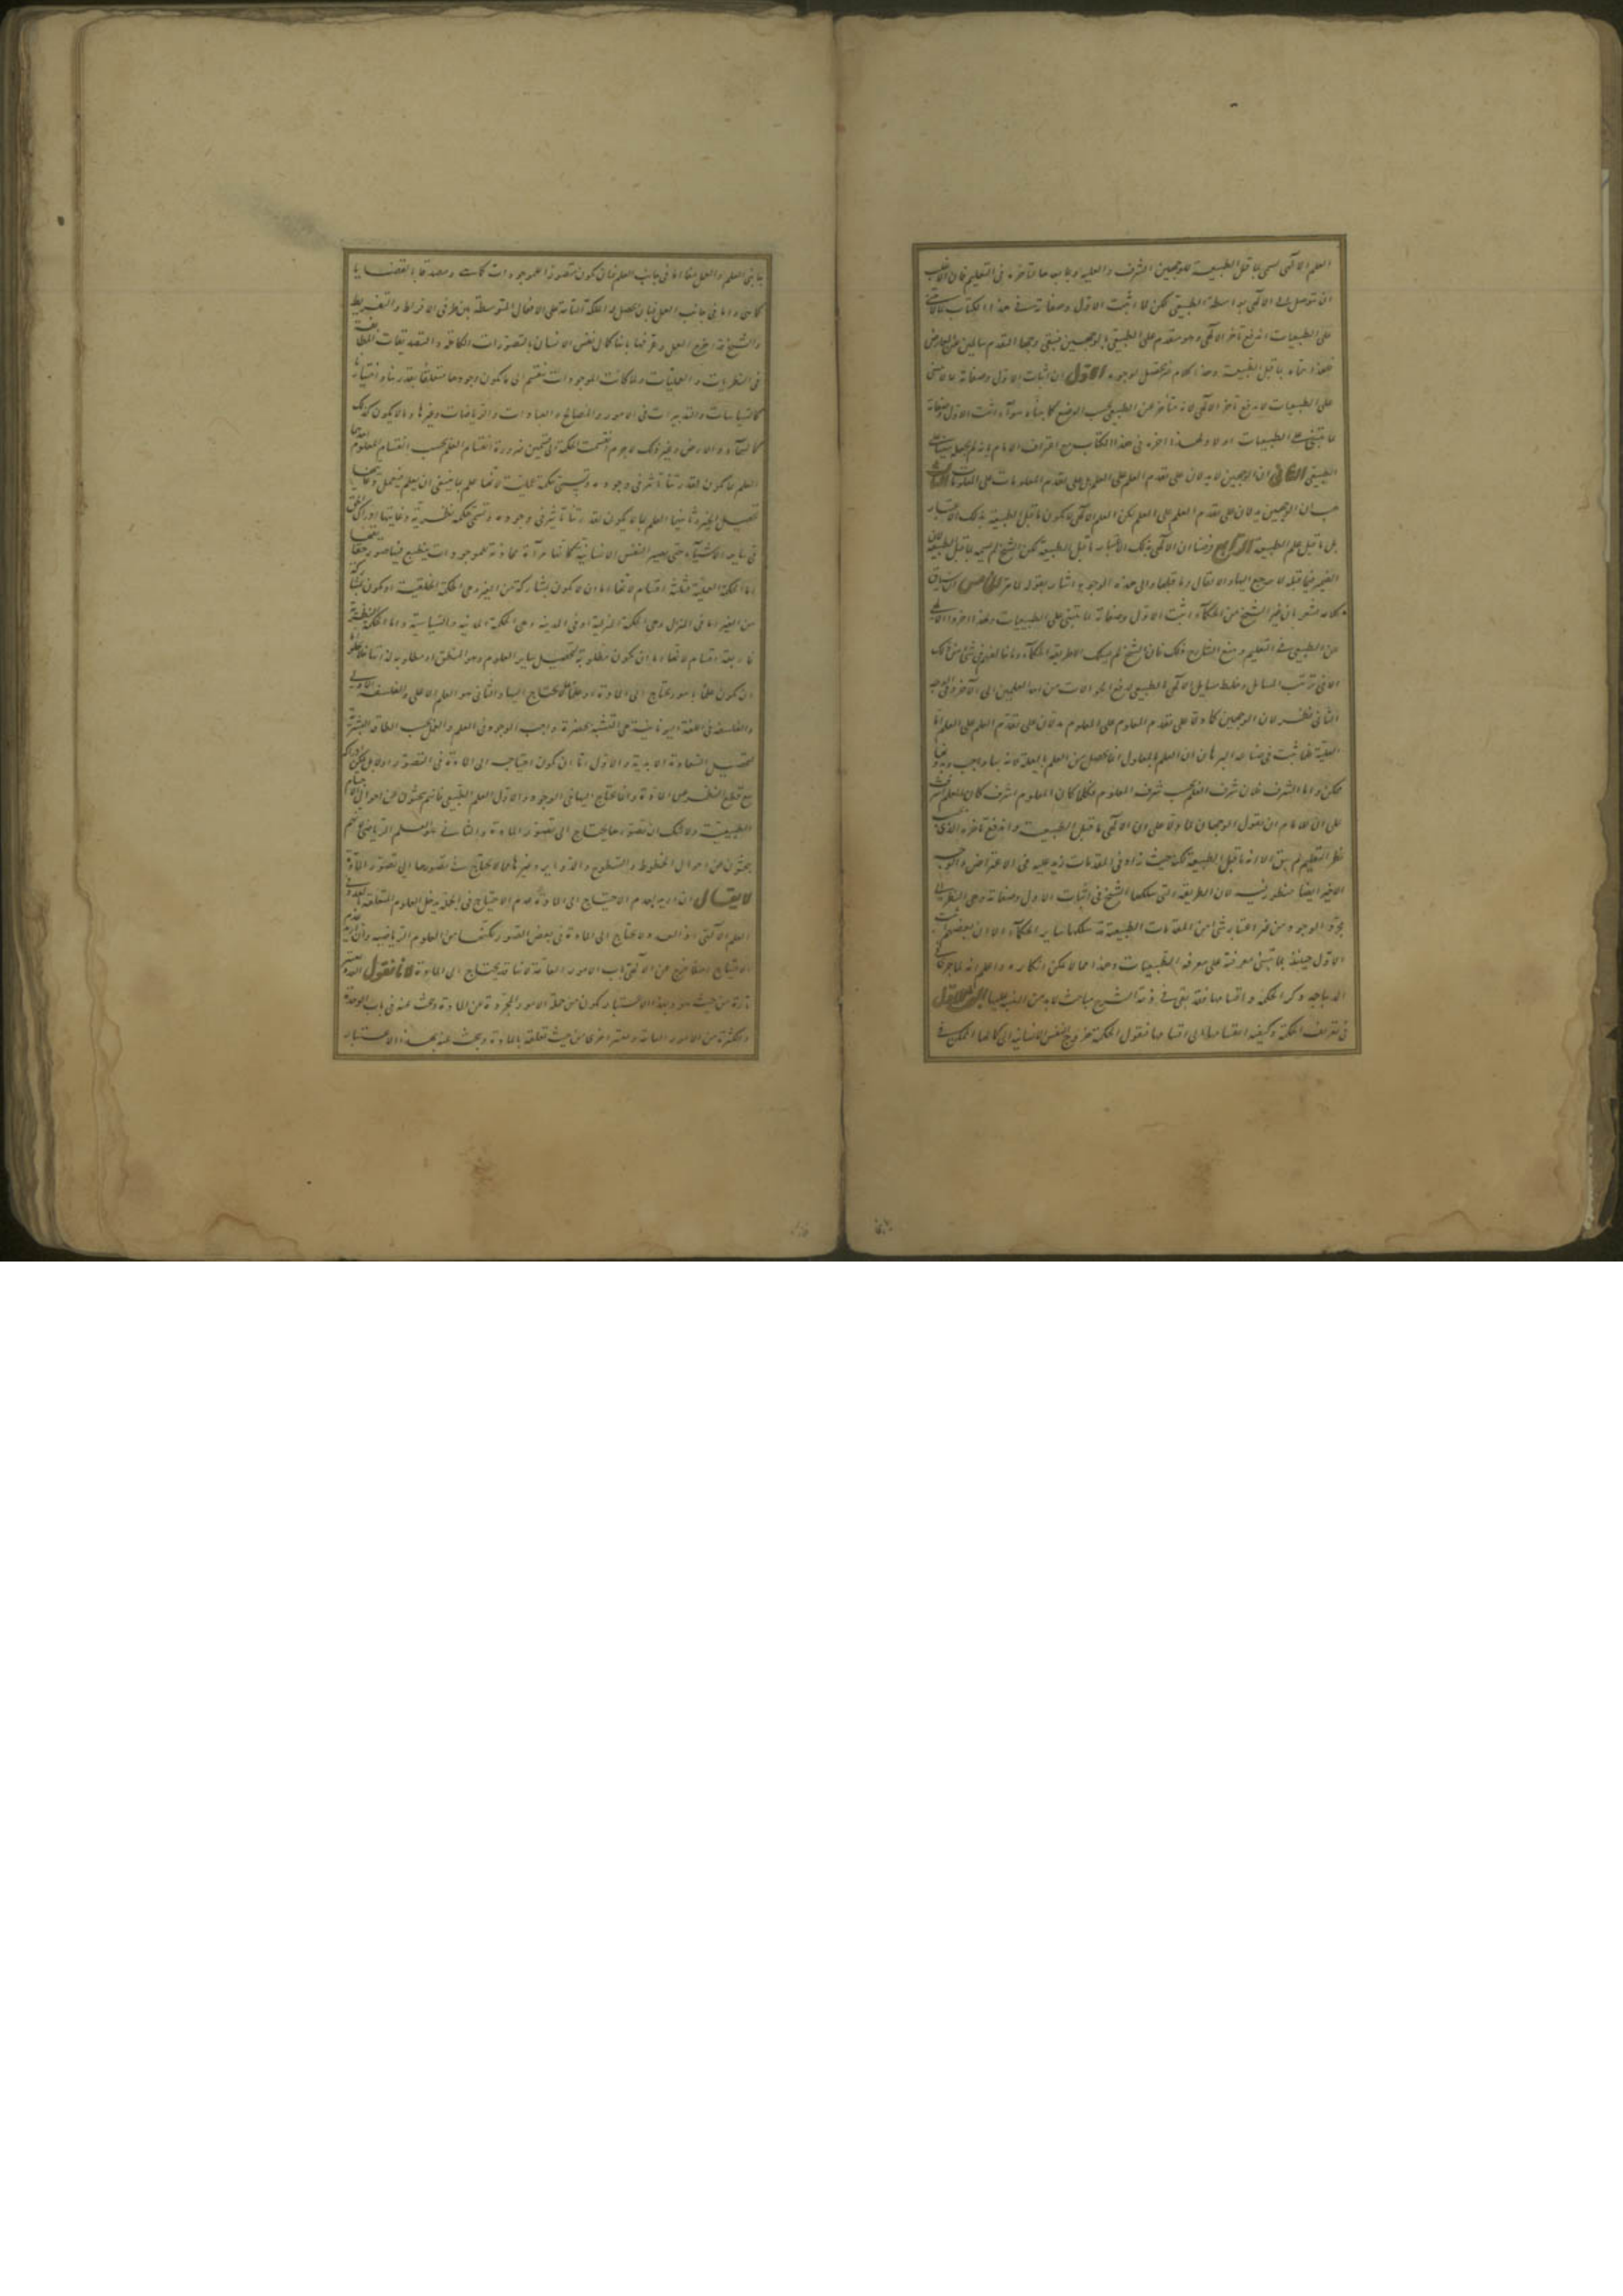 العلم الالهى يسمى ما قبل الطبيعة للوجهين الشرف والعلية وما بعدها لتأخره فى التعليم فان الاغلب
ان يتوصل الى الالهى بواسطة الطبيعى لكن لما اثبت الاول وصفاته فى هذا الكتاب بما لا يبتنى
على الطبيعيات اندفع تأخر الالهى وهو متقدم على الطبيعى بالوجهين فبقى وجها التقدم سالمين عن المعارض
فلهذا سماه بما قبل الطبيعة وهذا الكلام غير محصل لوجوه الاول ان اثبات الاول وصفاته بما لا يبتنى
على الطبيعيات لا يدفع تأخر الالهى لانه متأخر عن الطبيعى بحسب الوضع كما بيناه سواء اثبت الاول وصفاته
بما يبتنى على الطبيعيات او لا ولهذا اخره فى هذا الكتاب مع اعتراف الامام بانه لم يجعله مبنيا على
الطبيعى الثانى ان الوجهين لا يدلان على تقدم العلم على العلم بل على تقدم المعلومات على المعلومات الثالث
هب ان الوجهين يدلان على تقدم العلم على العلم لكن العلم الالهى لا يكون ما قبل الطبيعة بذلك الاعتبار
بل ما قبل علم الطبيعة الرابع فرضنا ان الالهى بذلك الاعتبار ما قبل الطبيعة لكن الشيخ لم يسمه ما قبل الطبيعة فان
الضمير فيما قبله لا يرجع اليها والا لقال وما قبلها والى هذه الوجوه اشار بقوله لما مر الخامس ان سياق
كلامه مشعر بان غير الشيخ من الحكماء اثبت الاول وصفاته بما يبتنى على الطبيعيات ولهذا اخروا الالهى
عن الطبيعى فى التعليم ومنع الشارح ذلك فان الشيخ لم يسلك الا طريقة الحكماء وما خالفهم فى شئ من ذلك
الا فى ترتيب المسائل وخلط مسايل الالهى بالطبيعى لدفع الحوالات من احد العلمين الى الآخر وفى الوجه
الثانى نظر لان الوجهين كما دلا على تقدم المعلوم على المعلوم يدلان على تقدم العلم على العلم اما
العلية فلما ثبت فى صناعة البرهان ان العلم بالمعلول انما يحصل من العلم بالعلة
واما الشرف فلان شرف العلم بحسب شرف المعلوم فكلما كان المعلوم اشرف كان العلم اشرف
على ان للامام ان يقول الوجهان لما دلا على ان الالهى ما قبل الطبيعة واندفع تأخره الذى بحسب
نظر التعليم لم يبق الا انه ما قبل الطبيعة لكنه حيث زاد فى المقدمات زيد عليه فى الاعتراض والوجه
الاخير ايضا منظور فيه لان الطريقة التى سلكها الشيخ فى اثبات الاول وصفاته وهى النظر فى
مجرد الوجود من غير اعتبار شئ من المقدمات الطبيعية قد سلكها ساير الحكماء الا ان بعضهم
الاول حينئذ بما يبتنى معرفته على معرفة الطبيعيات وهذا مما لا يمكن انكاره واعلم انه لما جرى فى
الديباجة ذكر الحكمة واقسامها فقد بقى فى ذمة الشرح مباحث لابد من التنبيه عليها البحث الاول
فى تعريف الحكمة وكيفية انقسامها الى اقسامها فنقول الحكمة خروج النفس الانسانية الى كمالها الممكن فى
جانبى العلم والعمل اما فى جانب العلم فبان يكون متصورا للموجودات كما هى ومصدقا بالقضايا
كما هى واما فى جانب العمل فبان يحصل له الملكة التامة على الافعال المتوسطة بين طرفى الافراط والتفريط
والشيخ قد اخرج العمل وعرفها بانها كمال نفس الانسان بالتصورات الكاملة والتصديقات الحقة
فى النظريات والعمليات ولما كانت الموجودات تنقسم الى ما يكون وجودها متعلقا بقدرتنا واختيارنا
كالسياسات والتدبيرات فى الامور والمصالح والعبادات والرياضات وغيرها وما لا يكون كذلك
كالسماء والارض وغير ذلك لا جرم انقسمت الحكمة الى قسمين ضرورة انقسام العلم بحسب انقسام المعلوم احدهما
العلم بما يكون لقدرتنا تأثير فى وجوده وتسمى حكمة عملية لانها علم بما ينبغى ان يعلم فيعمل وغايتها
تحصيل الخير وثانيهما العلم بما لا يكون لقدرتنا تأثير فى وجوده وتسمى حكمة نظرية وغايتها ادراك الحق
حتى يصير النفس الانسانية كانها مرآة محاذية للموجودات ينطبع فيها صور حقايقها
اما الحكمة العملية فثلثة اقسام لانها اما ان لا يكون بمشاركة من الغير وهى الحكمة الخلقية او يكون بمشاركة
من الغير اما فى المنزل وهى الحكمة المنزلية او فى المدينة وهى الحكمة المدنية والسياسية واما الحكمة النظرية
فاربعة اقسام لانها اما ان يكون مطلوبة لتحصيل ساير العلوم وهو المنطق او مطلوبة لذاتها
ان يكون علما بامور يحتاج الى المادة او علما لا يحتاج اليها والثانى هو العلم الاعلى والفلسفة الاولى
والفلسفة فى اللغة اليونانية هى التشبه بحضرة واجب الوجود فى العلم والعمل بحسب الطاقة البشرية
لتحصيل السعادة الابدية والاول اما ان يكون احتياجه الى المادة فى التصور اولا بل يمكن ادراكه
مع قطع النظر عن المادة وانما يحتاج اليها فى الوجود والاول العلم الطبيعى فانهم يبحثون عن احوال الاجسام
الطبيعية ولا شك ان تصورها يحتاج الى تصور المادة والثانى هو العلم الرياضى فانهم
يبحثون عن احوال الخطوط والسطوح والدواير وغيرها مما لا يحتاج فى تصورها الى تصور المادة
لا يقال ان اريد بعدم الاحتياج الى المادة عدم الاحتياج فى الجملة يدخل العلوم المتعلقة بالعدد فى
العلم الالهى اذ العدد لا يحتاج الى المادة فى بعض الصور لكنها من العلوم الرياضية وان اريد عدم
الاحتياج مطلقا خرج من الالهى باب الامور العامة لانها قد يحتاج الى المادة لانا نقول العدد يعتبر
تارة من حيث هو وبهذا الاعتبار يكون من جملة الامور المجردة عن المادة ويبحث عنه فى باب الوحدة
والكثرة من الامور العامة ويعتبر اخرى من حيث تعلقه بالمادة ويبحث عنه بهذا الاعتبار